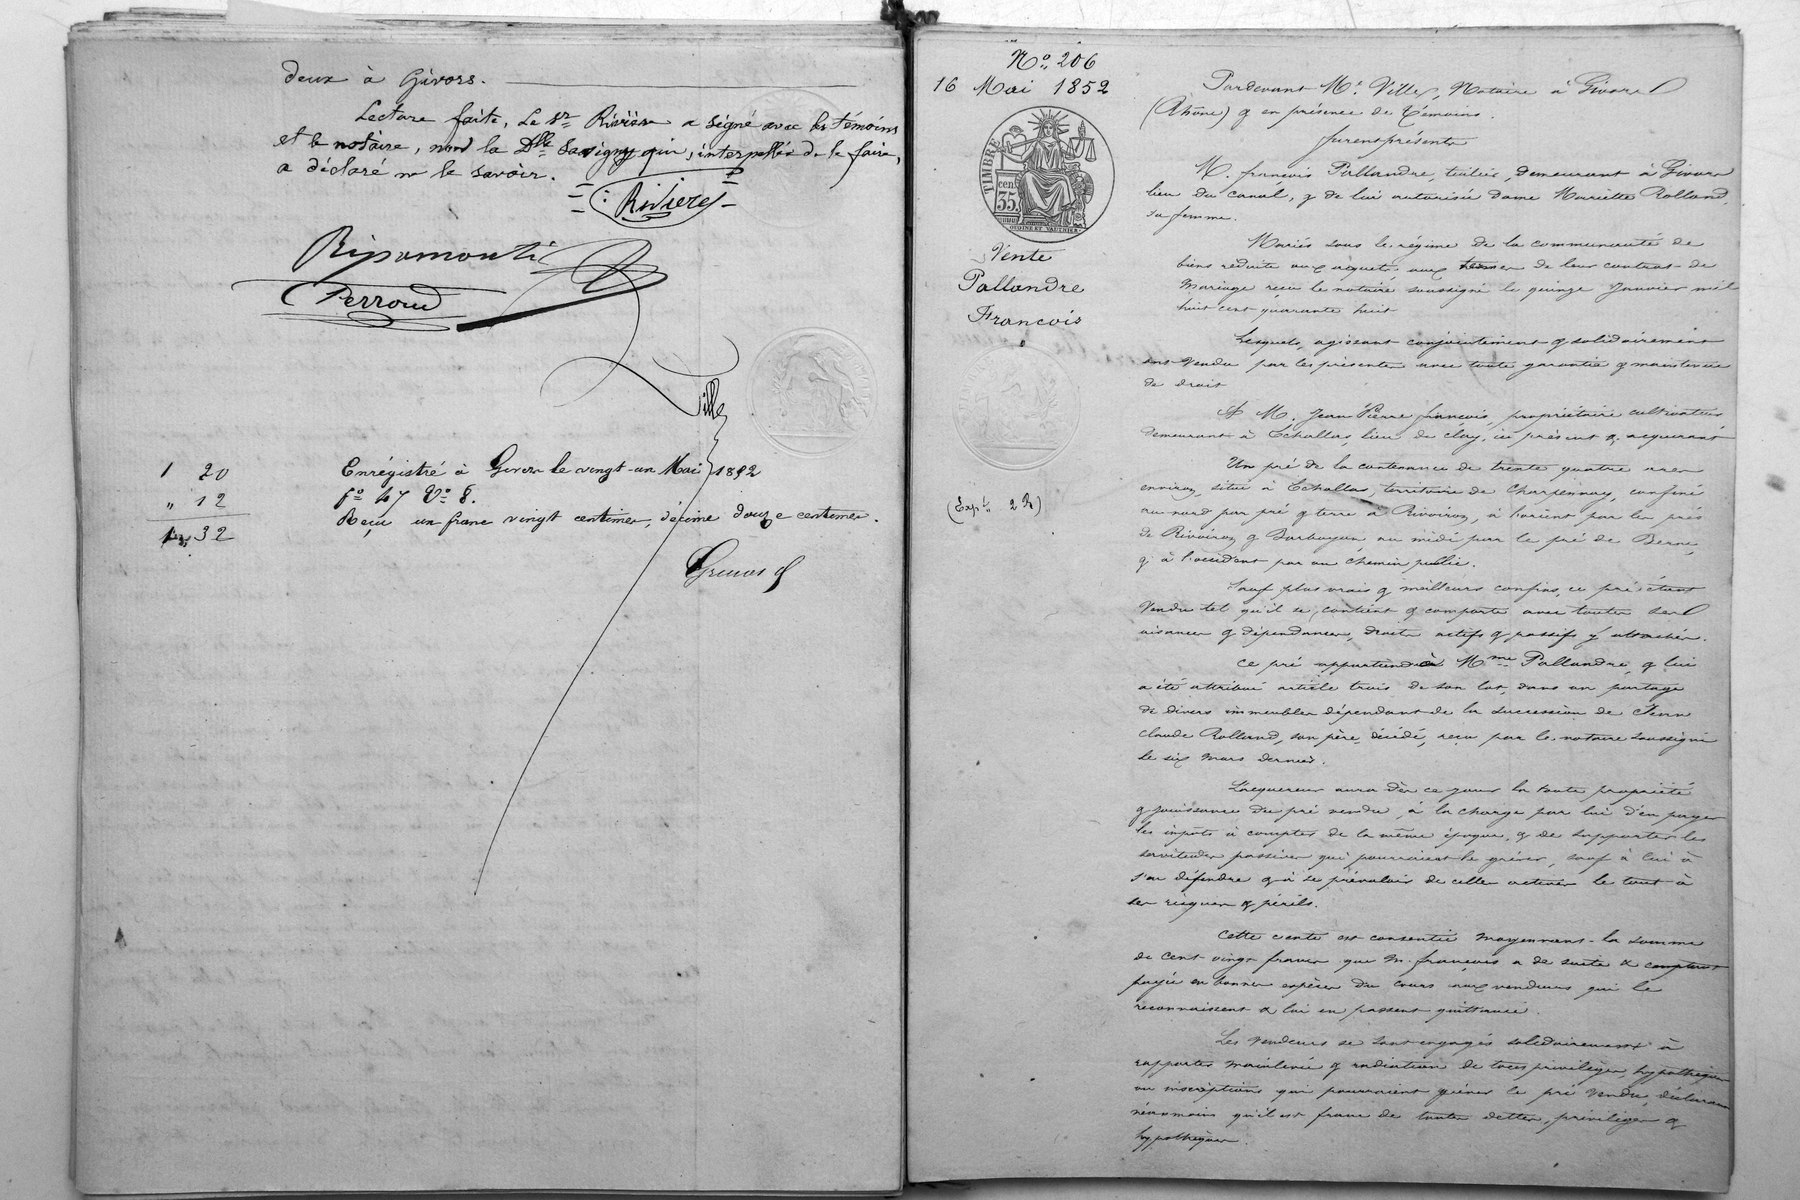 deux à Givors.
Lecture faite, le Sr. Rivière a signé avec les témoins
et le notaire, non la Dlle Savigny qui, interpellée de le faire,
a déclaré ne le savoir.
Rivière
Ripamonti
Perroud
Ville
1 20
„ 12
1 32
Enrégistré à Givors le vingt-un Mai 1852
fo 47 Vo 8.
Reçu un franc vingt centimes, décime douze centimes.
No 206
16 Mai 1852
TIMBRE
cen.
35.
OUDINE ET VAUTHIER.
Vente
Pallandre
François
(Exp. 2 R)
Pardevant Me. Ville, Notaire à Givors
(Rhône) & en présence de Témoins.
furent présents
M. françois Pallandre, tuilier, demeurant à Givors
lieu du canal, & de lui autorisée dame Mariette Rolland,
sa femme.
Mariés sous le régime de la communauté de
biens réduite aux acquets aux termes de leur contrat de
Mariage reçu le notaire soussigné le quinze Janvier mil
huit cent quarante huit
Lesquels, agissant conjointement & solidairement
ont Vendu par les présentes avec toute garantie & maintenue
de droit
A M. Jean Pierre françois, propriétaire cultivateur
demeurant à Echallas, lieu de clay, ici présent & acquérant
Un pré de la contenance de trente quatre ares
environ, situé à Echallas, territoire de Charpenay, confiné
au nord par pré & terre à Rivoiron, à l'orient par les prés
de Rivoiron & Barbayon au midi par le pré de Berne,
& à l'occident par un chemin public.
Sauf plus vrais & meilleurs confins, ce pré étant
Vendu tel qu'il se contient & comporte avec toutes ses
aisances & dépendances, droits actifs & passifs y attachés.
Ce pré appartient à Mme Pallandre, & lui
a été attribué article trois de son lot, dans un partage
de divers immeubles dépendant de la succession de Jean
Claude Rolland, son père, décédé, reçu par le notaire soussigné
le six mars dernier.
L'acquéreur aura dès ce jour la toute propriété
& jouissance du pré vendu, à la charge par lui d'en payer
les impots à compter de la même époque, & de supporter les
servitudes passives qui pourraient le grever, sauf à lui à
s'en défendre & à se prévaloir de celles actives le tout à
ses risques & périls.
Cette vente est consentie moyennant la somme
de Cent vingt francs que M. françois a de suite & comptant
payée en bonnes espèces du cours aux vendeurs qui le
reconnaissent & lui en passent quittance.
Les Vendeurs se sont engagés solidairement à
rapporter mainlevée & radiation de tous privilèges, hypothèques
ou inscriptions qui pourraient grever le pré vendu, déclarant
néanmoins qu'il est franc de toutes dettes, privilèges &
hypothèques.